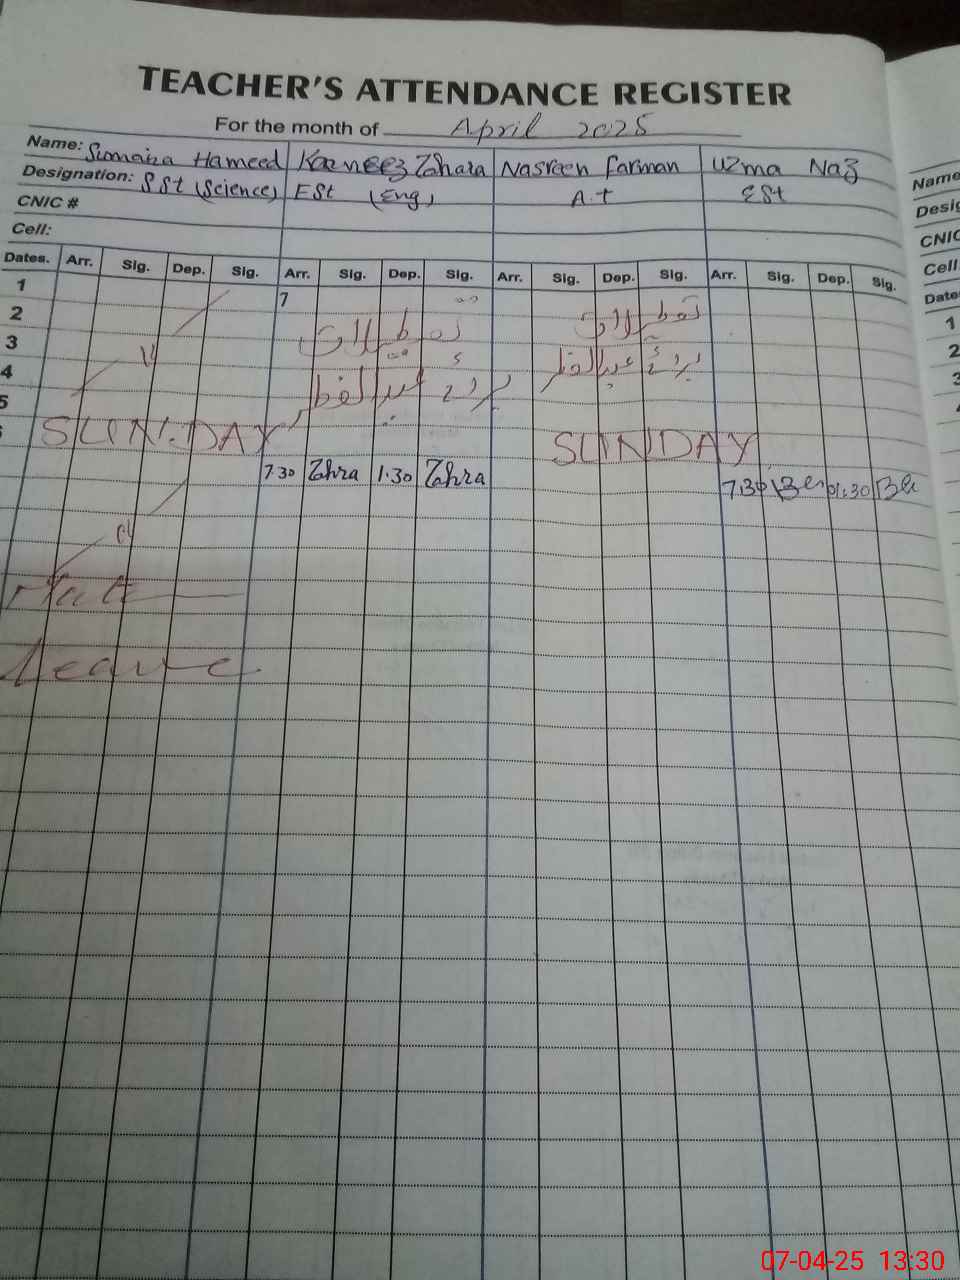 TEACHER'S ATTENDANCE REGISTER
For the month of April 2025
Name: Sumaira Hameed Kaneez Zahara Nasreen Farman Uzma Naz
Name
Designation: SSt (Science) ESt (Eng) A.T ESt
Desig
CNIC #
CNIC
Cell:
Cell
Dates. Arr. Sig. Dep. Sig. Arr. Sig. Dep. Sig. Arr. Sig. Dep. Sig. Arr. Sig. Dep. Sig.
Date
1 7
1
2 تعطیلات تعطیلات
2
3 برائے عیدالفطر برائے عیدالفطر
3
4
5
SUNDAY SUNDAY
7.30 Zahra 1.30 Zahra 7:30 01:30
Leave
07-04-25 13:30